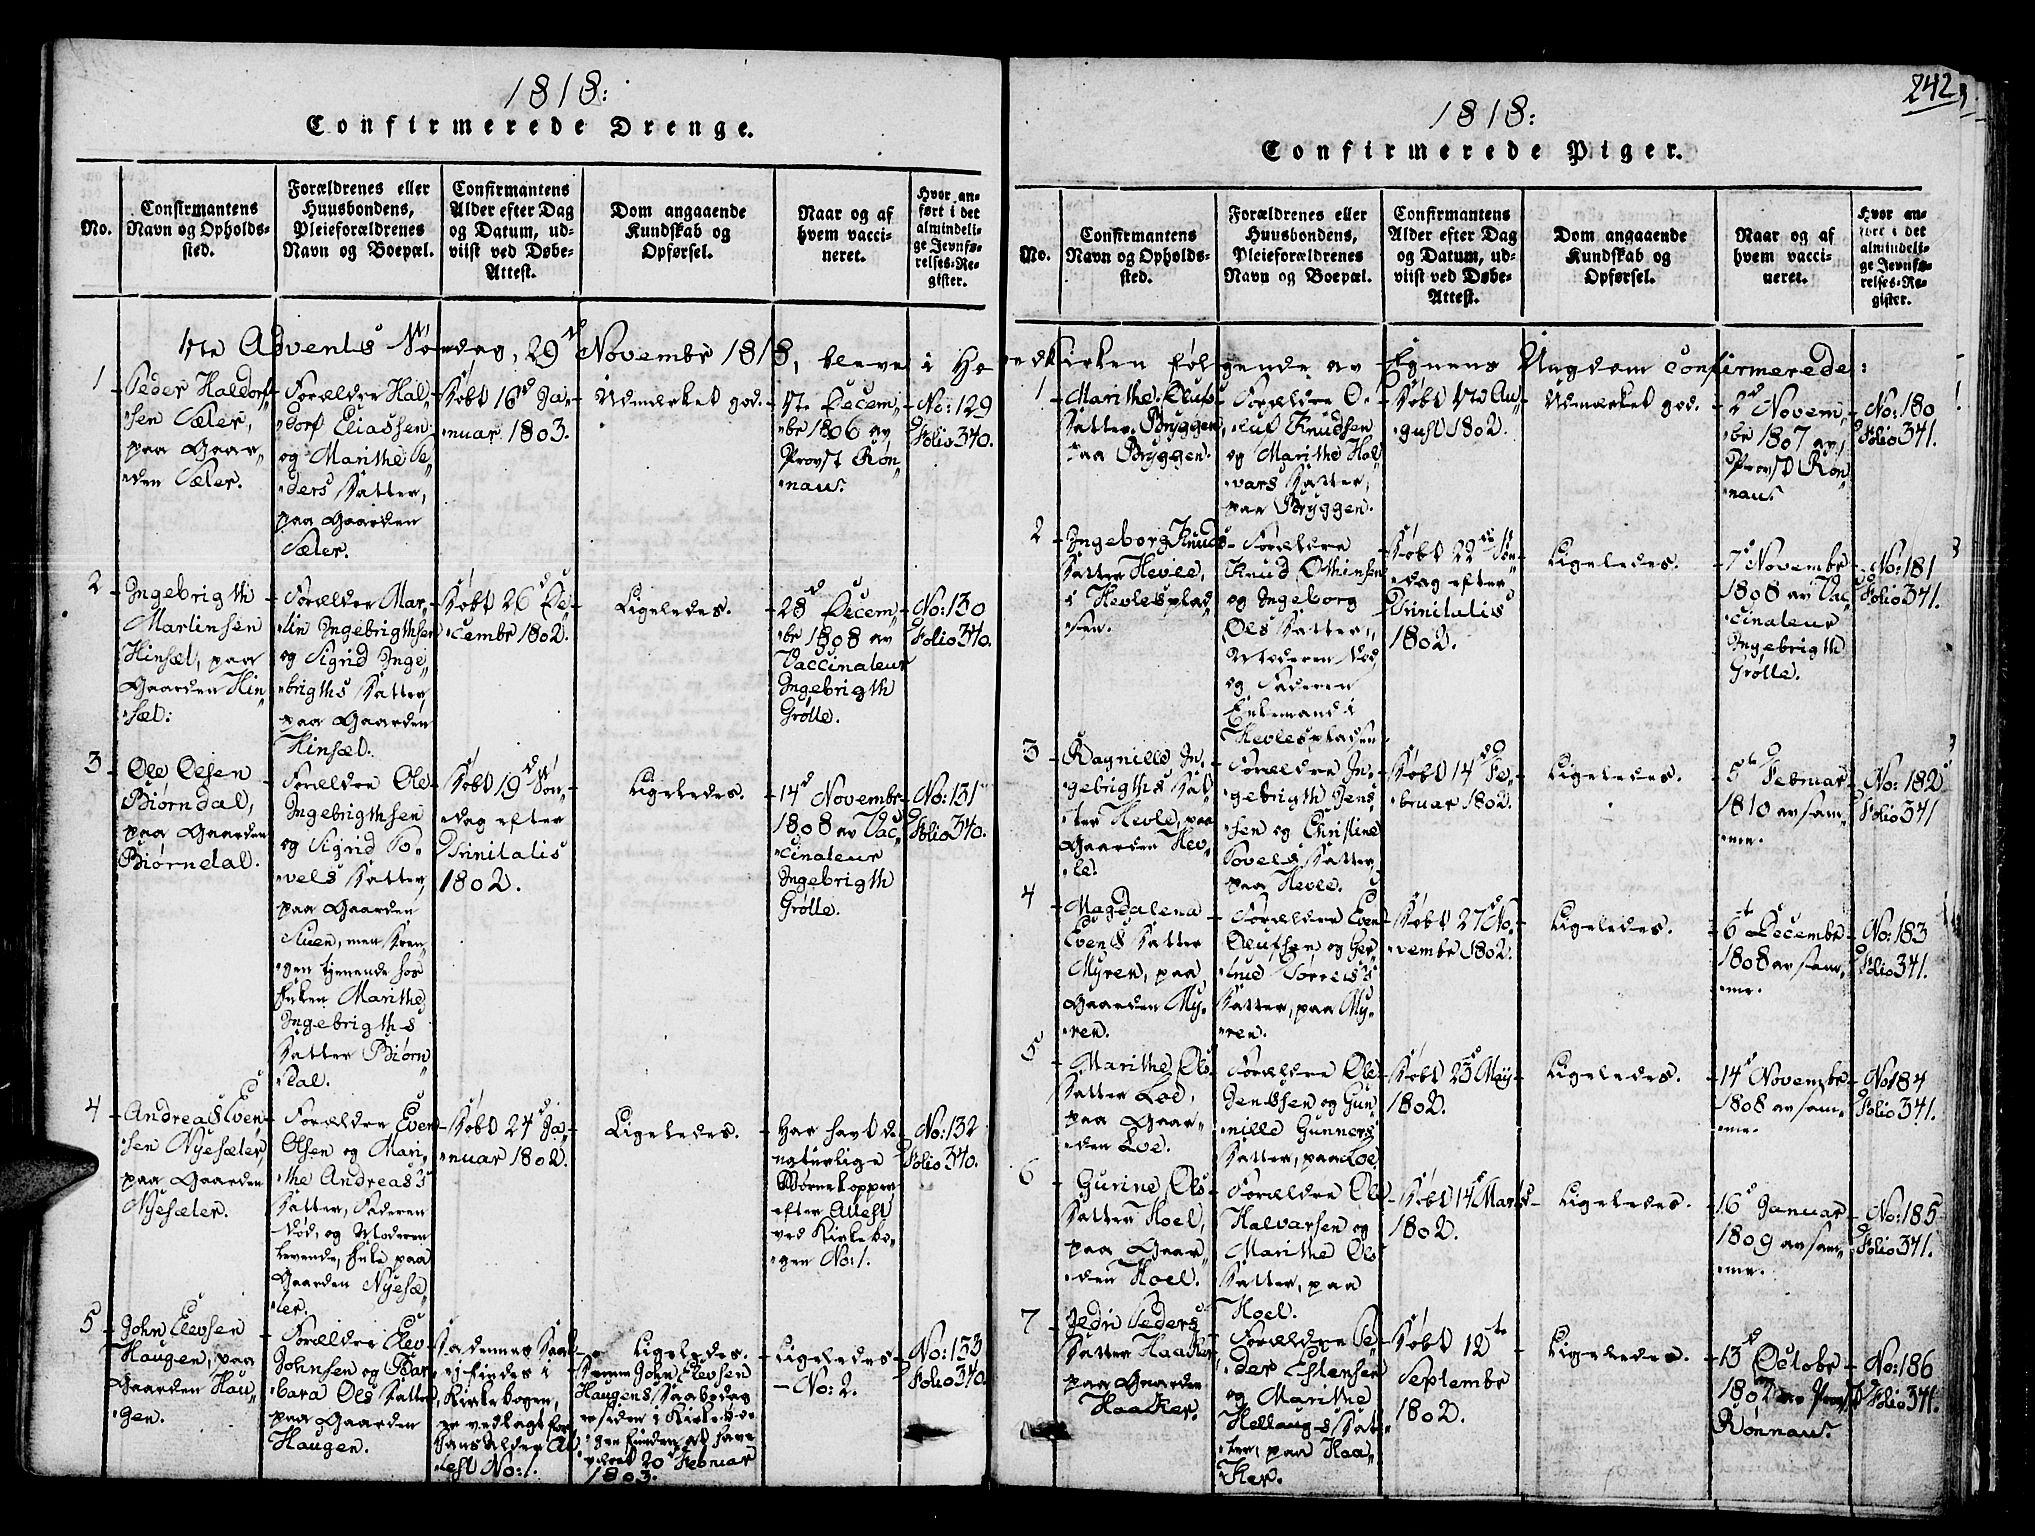 1818:
Confirmerede Drenge.
No.
Confirmantens
Navn og Opholds-
sted.
Forældrenes eller
Huusbondens,
Pleieforældrenes
Navn og Boepæl.
Confirmantens
Alder efter Dag
og Datum, ud-
viist ved Døbe-
Attest.
Dom angaaende
Kundskab og
Opførsel.
Naar og af
hvem vacci-
neret.
Hvor an-
ført i det
almindeli-
ge Jevnfø-
relses-Re-
gister.
1te Advents Søndag, 29d Novembr 1818, bleve i He
1
Peder Haldorf-
sen Sæter,
paa Gaar-
den Sæter.
Forældre Hal-
dorf Eliassen
og Marithe Pe-
ders Datter,
paa Gaarden
Sæter.
Døbt 16d Ja-
nuar 1803.
Udmærket god.
17te Decem-
br 1806 av
Provst Røn-
nau.
No: 129
Folio 340.
2
Ingebrigth
Martinsen
Hinsæt, paa
Gaarden Hin-
sæt.
Forældre Mar-
tin Ingebrigthsen
og Sigrid Inge-
brigths Datter,
paa Gaarden
Hinsæt.
Døbt 26d De-
cembr 1802.
Ligeledes.
28d Decem-
br 1808 av
Vaccinateur
Ingebrigth
Grötte.
No: 130
Folio 340.
3
Ole Olsen
Biørndal,
paa Gaarden
Biørndal.
Forældre Ole
Ingebrigthsen
og Sigrid Po-
vels Datter,
paa Gaarden
Stuen, men Dren-
gen tjenende hos
Enken Marithe
Ingebrigths
Datter Biørn-
dal.
Døbt 19d Søn-
dag efter
Trinitatis
1802.
Ligeledes.
14d Novembr
1808 av Vac-
cinateur
Ingebrigth
Grötte.
No: 131
Folio 340.
4
Andreas Even-
sen Nyesæter,
paa Gaarden
Nyesæter.
Forældre Even
Olsen og Mari-
the Andreas
Datter, Faderen
død, og Moderen
levende, Enke paa
Gaarden Nyesæ-
ter.
Døbt 24d Ja-
nuar 1802.
Ligeledes.
Har havt de
naturlige
Børnekopper
efter Attest
ved Kirkebo-
gen No: 1.
No: 132
Folio 340.
5
John Elevsen
Haugen, paa
Gaarden Hau-
gen.
Forældre Elev
Johnsen og Bar-
bara Ols Datter
paa Gaarden
Haugen.
ej findes i
Kirkebogen,
hans Alder At-
test No: 1.
Ligeledes.
John Elevsen
Haugens
siden i Kirkebo-
gen funden at have
været 20d Februar
1803.
Ligeledes
No: 2.
No: 133
Folio 340.
242
1818:
Confirmerede Piger.
No.
Confirmantens
Navn og Opholds-
sted.
Forældrenes eller
Huusbondens,
Pleieforældrenes
Navn og Boepæl.
Confirmantens
Alder efter Dag
og Datum, ud-
viist ved Døbe-
Attest.
Dom angaaende
Kundskab og
Opførsel.
Naar og af
hvem vacci-
neret.
Hvor an-
ført i det
almindeli-
ge Jevnfø-
relses-Re-
gister.
Kirken følgende av Egnens Ungdom confirmerede:
1
Marithe Olufs
Datter Bryggen,
paa Bryggen.
Forældre O-
luf Knudsen
og Marithe Hal-
vars Datter,
paa Bryggen.
Døbt 17de Au-
gust 1802.
Udmærket god.
2d Novem-
br 1807 av
Provst Røn-
nau.
No: 180
Folio 341.
2
Ingeborg Knuds
Datter Hevle,
i Hevlesplad-
sen.
Forældre
Knud Othinsen
og Ingeborg
Ols Datter,
Moderen død,
og Faderen
Enkemand i
Hevlespladsen.
Døbt 22de Søn-
dag efter
Trinitatis
1802.
Ligeledes.
7d Novembr
1808 av Vac-
cinateur
Ingebrigth
Grötte.
No: 181
Folio 341.
3
Ragnille In-
gebrigths Dat-
ter Hevle, paa
Gaarden Hev-
le.
Forældre In-
gebrigth Jens-
sen og Christine
Povels Datter,
paa Hevle.
Døbt 14d Fe-
bruar 1802.
Ligeledes.
5te Februar
1810 av sam-
me.
No: 182
Folio 341
4
Magdalena
Evens Datter
Myren, paa
Gaarden My-
ren.
Forældre Even
Olufsen og Ger-
trud Torreis
Datter, paa My-
ren.
Døbt 27d No-
vembr 1802.
Ligeledes.
6te Decembr
1808 av sam-
me.
No: 183
Folio 341.
5
Marithe Ols
Datter Loe,
paa Gaar-
den Loe.
Forældre Ole
Jenssen og Gun-
nille Gunners
Datter, paa Loe
Døbt 23d May
1802.
Ligeledes.
14d Novembr
1808 av sam-
me.
No 184
Folio 341.
6
Gurine Ols
Datter Hoel,
paa Gaar-
den Hoel.
Forældre Ole
Halvarsen og
Marithe Ols
Datter, paa
Hoel.
Døbt 14d Marts
1802.
Ligeledes.
16d Januar
1809 av sam-
me.
No: 185
Folio 341.
7
Peders
Datter Haaker
paa Gaarden
Haaker.
Forældre Pe-
der Estensen
og Marithe
Hellaugs Dat-
ter, paa Haa-
ker.
Døbt 12te
Septembr
1802.
Ligeledes.
13d Octobr
1802 av Provst
Rønnau.
No: 186
Folio 341.